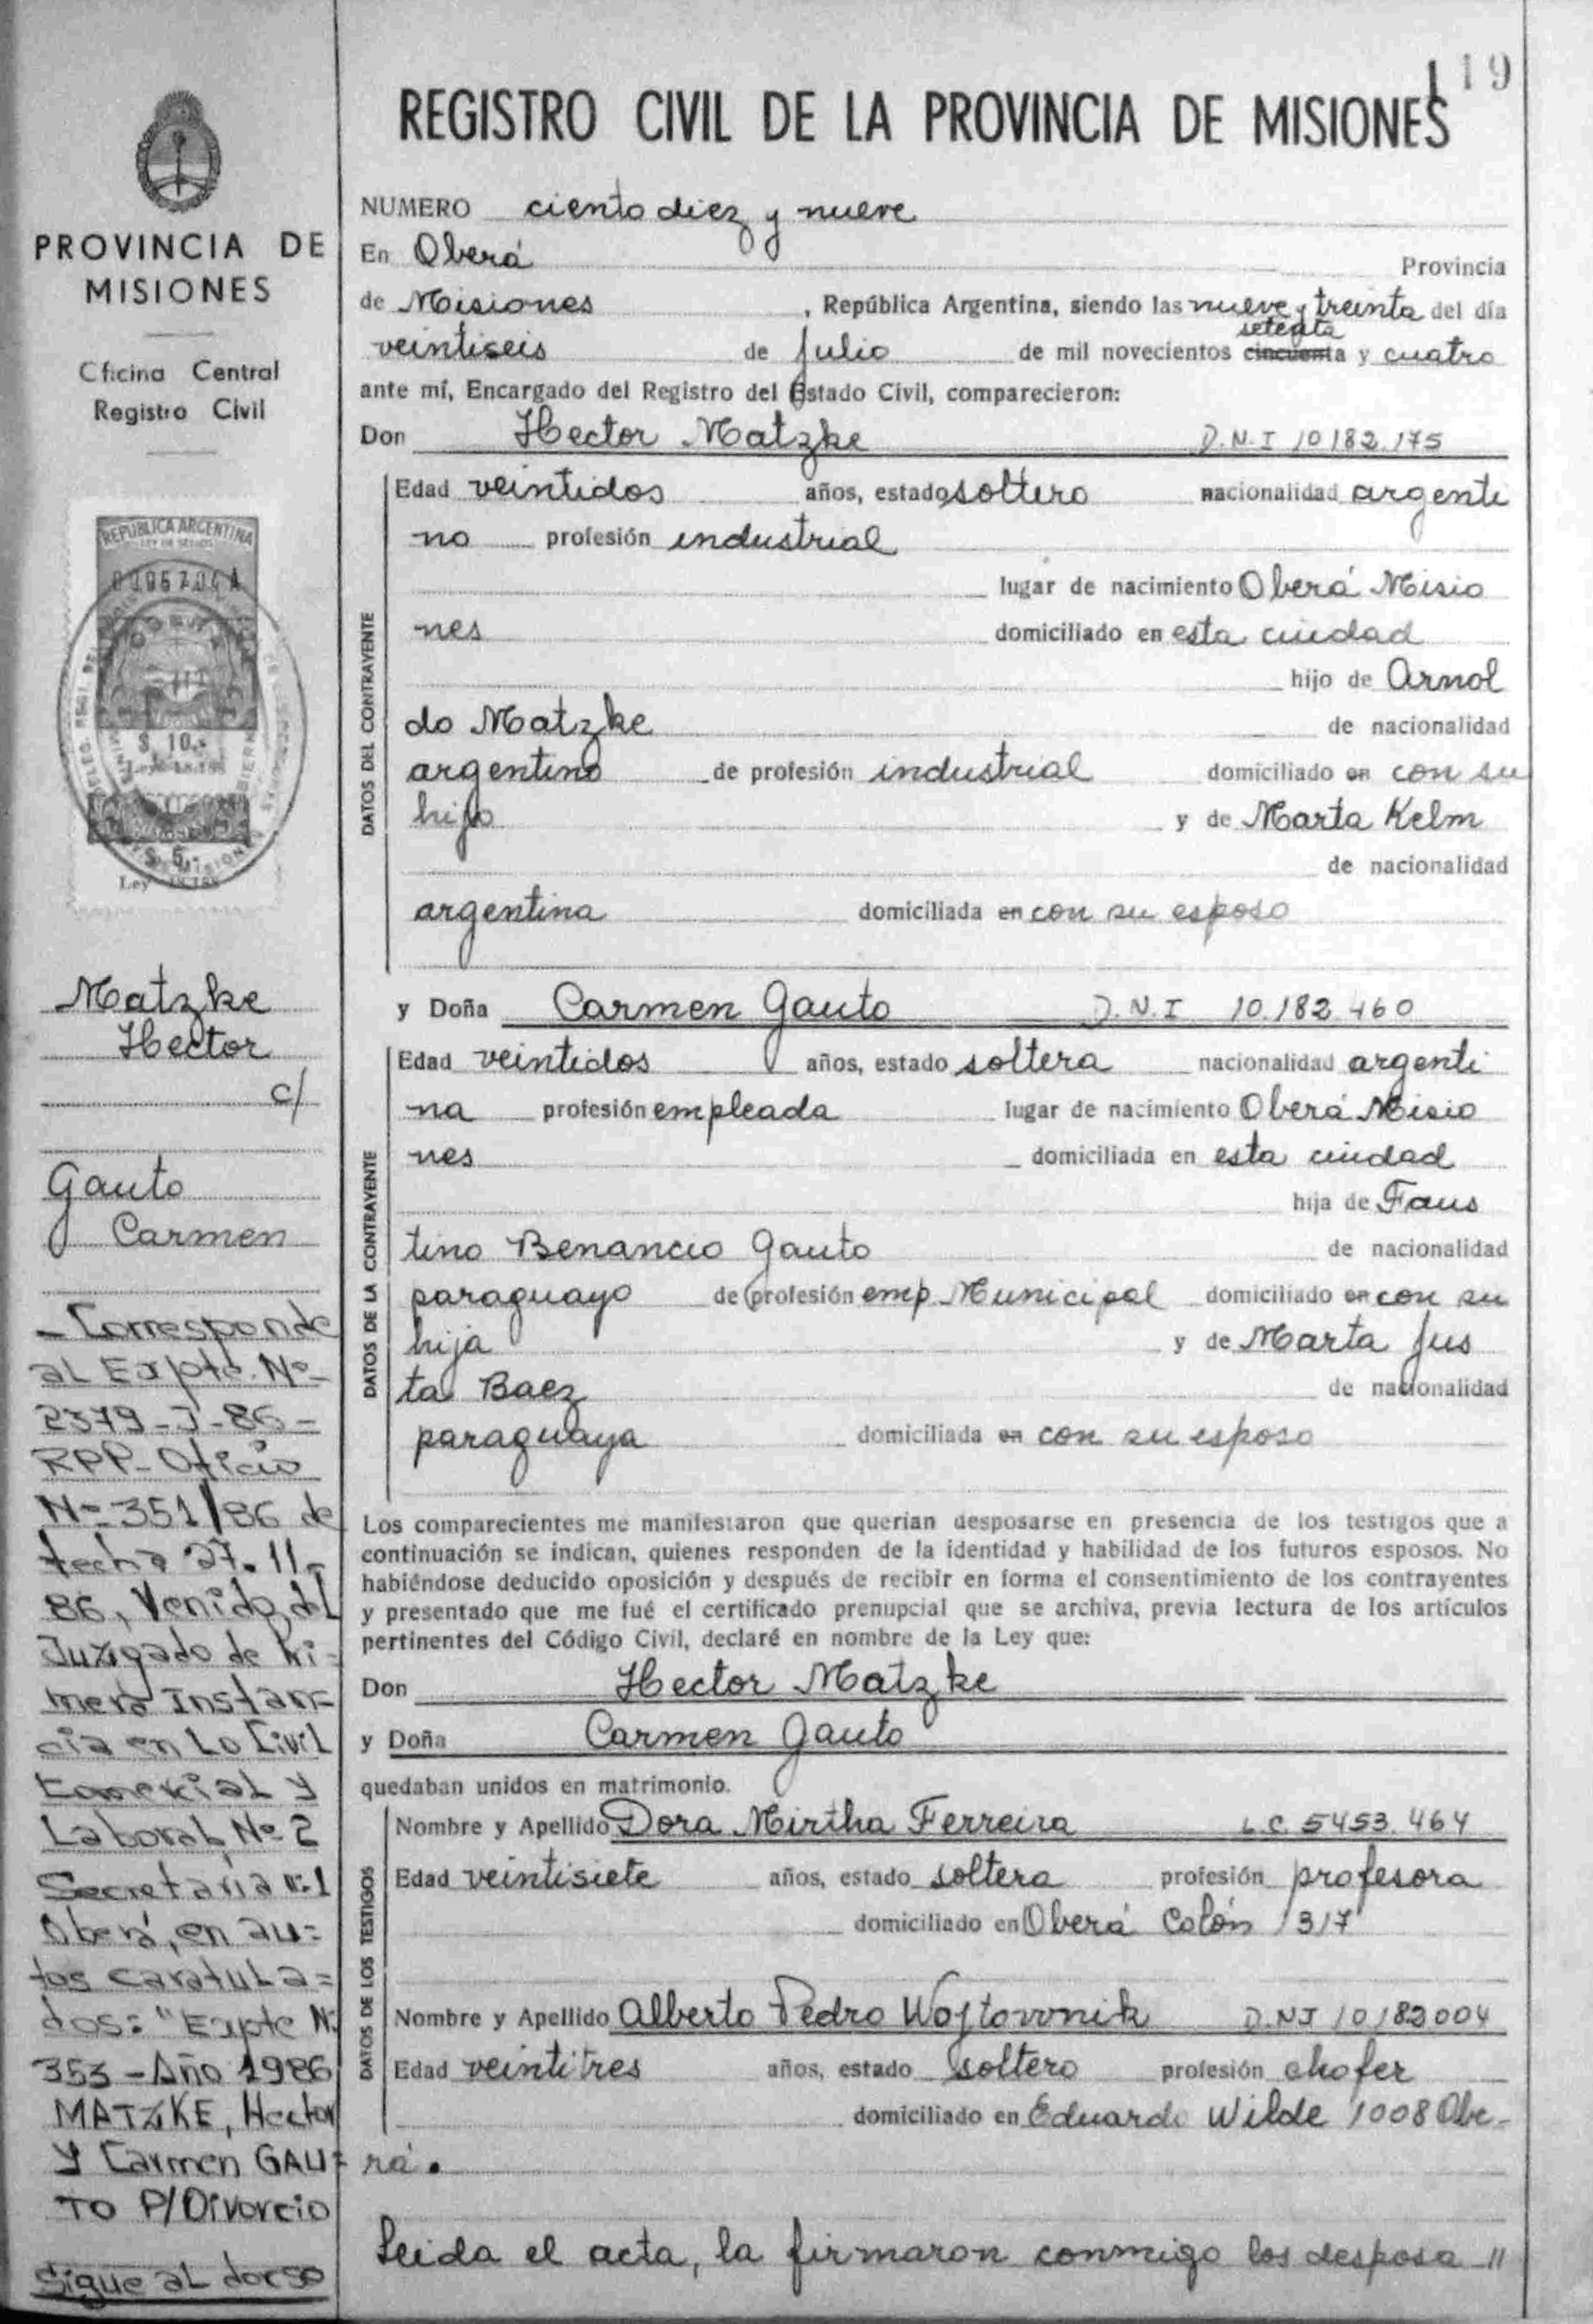 119
REGISTRO CIVIL DE LA PROVINCIA DE MISIONES
PROVINCIA DE
MISIONES
Oficina Central
Registro Civil
REPUBLICA ARGENTINA
$ 10.-
$ 5.-
Ley
Matzke
Hector
c/
Gauto
Carmen
- Corresponde
al Expte. Nº
2379-J-86-
RPP- Oficio
Nº 351/86 de
fecha 27.11-
86, Venido del
Juzgado de Pri-
mera Instan-
cia en Lo Civil
Comercial y
Laboral Nº 2
Secretaría Nº 1
Oberá, en au=
tos caratula=
dos: "Expte Nº
353 - Año 1986
MATZKE, Hector
y Carmen GAU=
TO P/Divorcio
Sigue al dorso
NUMERO ciento diez y nueve
En Oberá Provincia
de Misiones , República Argentina, siendo las nueve y treinta del día
setenta
veintiseis de Julio de mil novecientos cincuenta y cuatro
ante mí, Encargado del Registro del Estado Civil, comparecieron:
Don Hector Matzke D.N.I 10.182.175
DATOS DEL CONTRAYENTE
Edad veintidos años, estado soltero nacionalidad argenti
no profesión industrial
lugar de nacimiento Oberá Misio
nes domiciliado en esta ciudad
hijo de Arnol
do Matzke de nacionalidad
argentino de profesión industrial domiciliado en con su
hijo y de Marta Kelm
de nacionalidad
argentina domiciliada en con su esposo
y Doña Carmen Gauto D.N.I 10.182.460
DATOS DE LA CONTRAYENTE
Edad veintidos años, estado soltera nacionalidad argenti
na profesión empleada lugar de nacimiento Oberá Misio
nes domiciliada en esta ciudad
hija de Faus
tino Benancio Gauto de nacionalidad
paraguayo de profesión emp. Municipal domiciliado en con su
hija y de Marta Jus
ta Baez de nacionalidad
paraguaya domiciliada en con su esposo
Los comparecientes me manifestaron que querían desposarse en presencia de los testigos que a
continuación se indican, quienes responden de la identidad y habilidad de los futuros esposos. No
habiéndose deducido oposición y después de recibir en forma el consentimiento de los contrayentes
y presentado que me fué el certificado prenupcial que se archiva, previa lectura de los artículos
pertinentes del Código Civil, declaré en nombre de la Ley que:
Don Hector Matzke
y Doña Carmen Gauto
quedaban unidos en matrimonio.
DATOS DE LOS TESTIGOS
Nombre y Apellido Dora Mirtha Ferreira L.C. 5453.464
Edad veintisiete años, estado soltera profesión profesora
domiciliado en Oberá Colón 1317
Nombre y Apellido Alberto Pedro Wojtovvnik D.N.I 10182004
Edad veintitres años, estado soltero profesión chofer
domiciliado en Eduardo Wilde 1008 Obe-
rá.
Leida el acta, la firmaron conmigo los desposa //